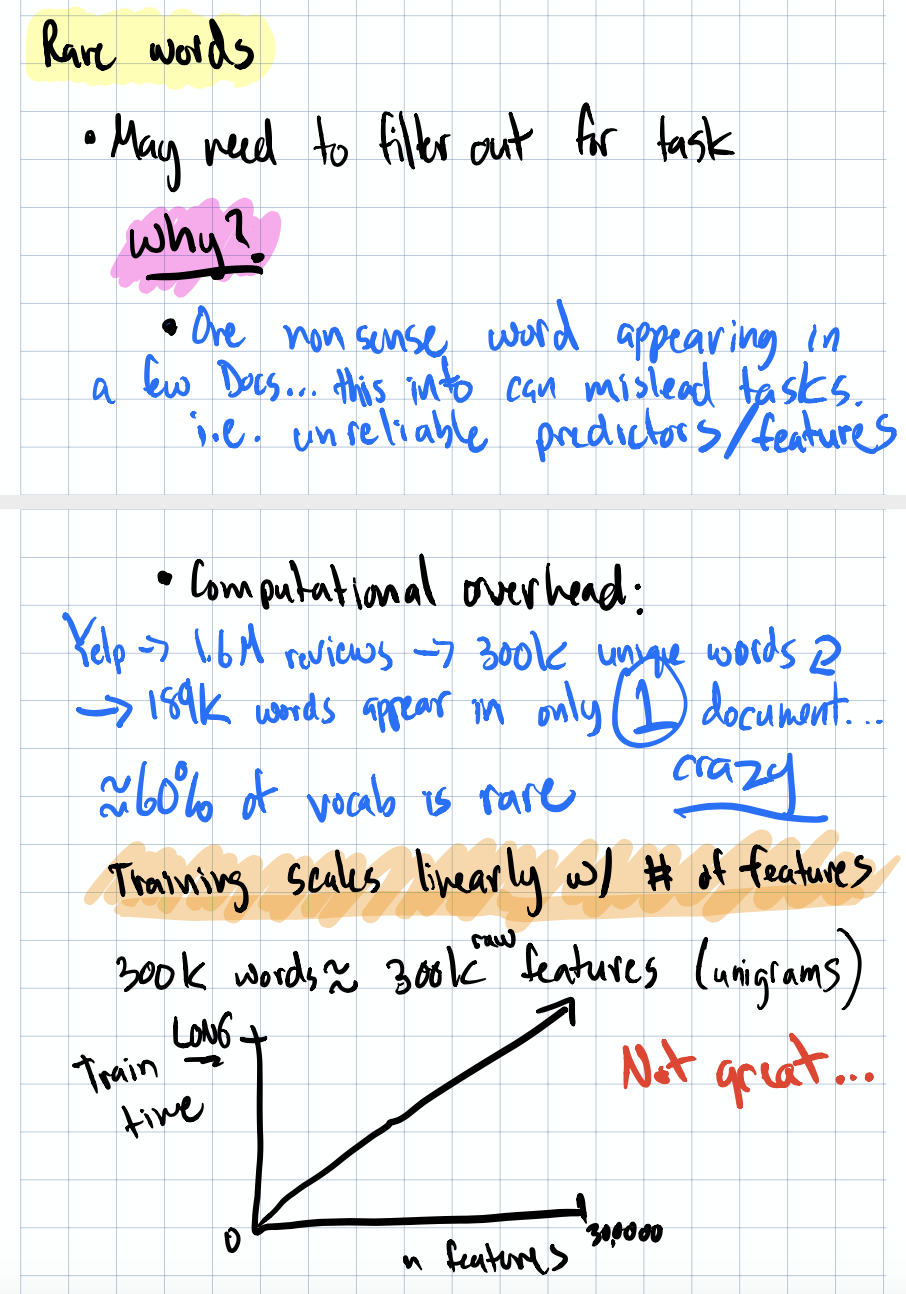 Rare words
• May need to filter out for task
Why?
• One nonsense word appearing in
a few Docs... this info can mislead tasks.
i.e. unreliable predictors/features
• Computational overhead:
Yelp -> 1.6M reviews -> 300k unique words
-> 189k words appear in only 1 document...
≈60% of vocab is rare crazy
Training scales linearly w/ # of features
300k words ≈ 300k raw features (unigrams)
LONG
Train
time
Not great...
0
n features